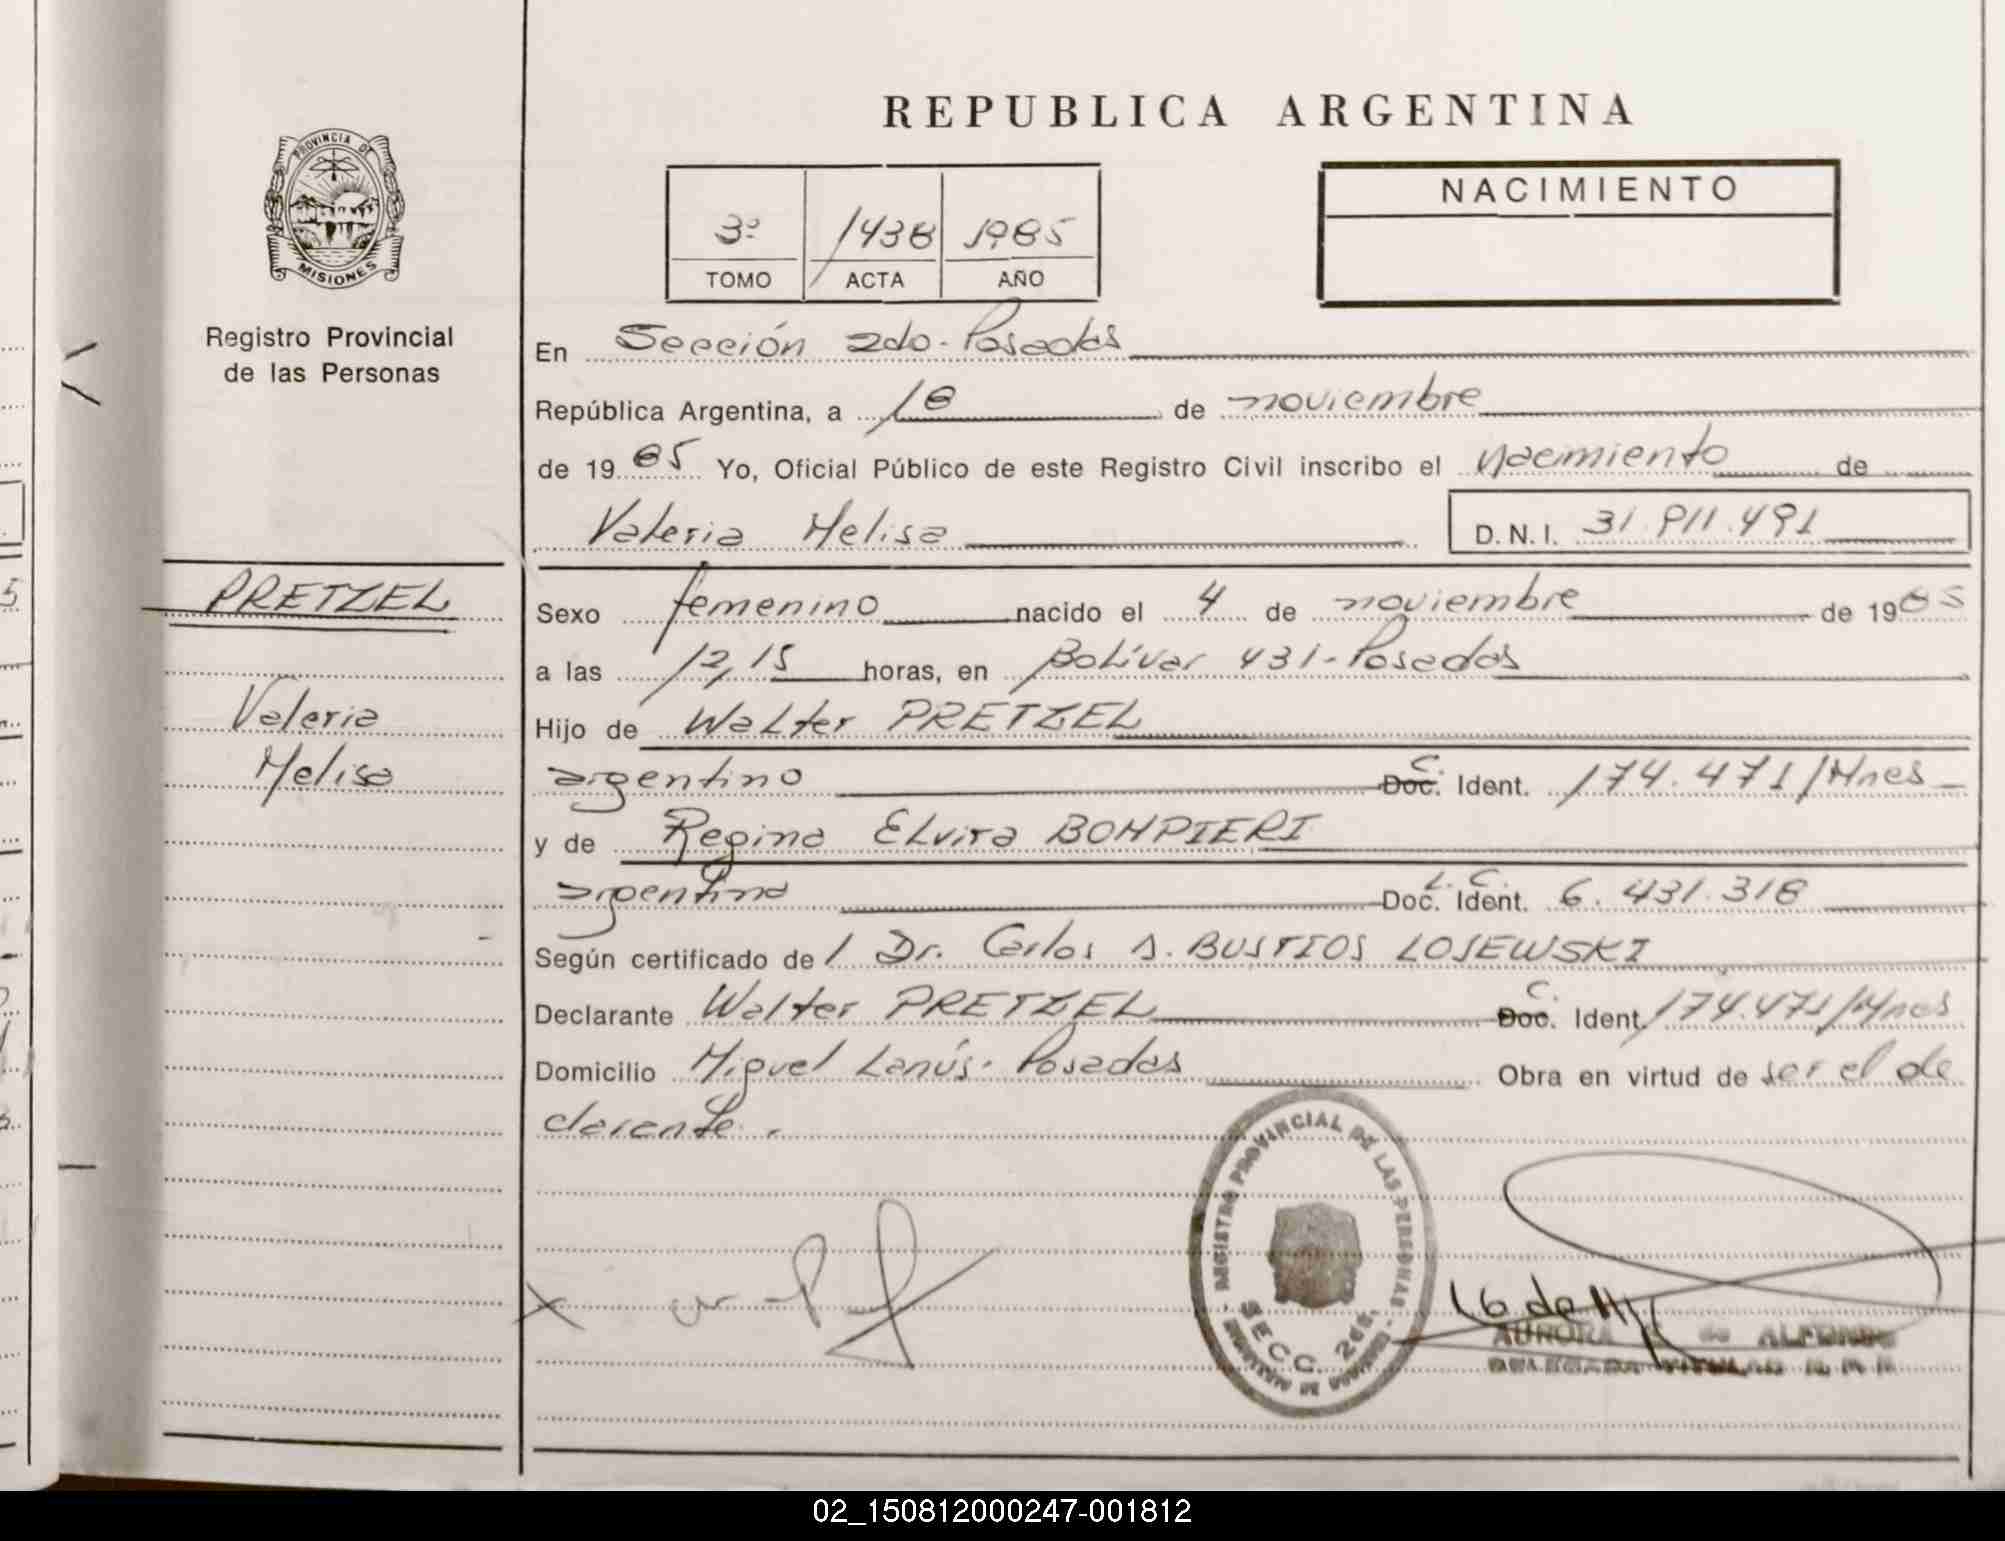 REPUBLICA ARGENTINA
PROVINCIA DE
MISIONES
Registro Provincial
de las Personas
3º 1438 1985
TOMO ACTA AÑO
NACIMIENTO
En Sección 2da. Posadas
República Argentina, a 18 de noviembre
de 1985 Yo, Oficial Público de este Registro Civil inscribo el nacimiento de
Valeria Melisa D.N.I. 31.911.491
PRETZEL
Valeria
Melisa
Sexo femenino nacido el 4 de noviembre de 1985
a las 12,15 horas, en Bolívar 431-Posadas
Hijo de Walter PRETZEL
argentino C. Doc. Ident. 174.471/Mnes
y de Regina Elvira BOMPIERI
argentina L. C. Doc. Ident. 6.431.318
Según certificado de l Dr. Carlos A. BUSTIOS LOSEWSKI
Declarante Walter PRETZEL C. Doc. Ident. 174.471/Mnes
Domicilio Miguel Lanús. Posadas Obra en virtud de ser el de
clarante.
REGISTRO PROVINCIAL DE LAS PERSONAS
SECC. 2da.
AURORA de
02_150812000247-001812